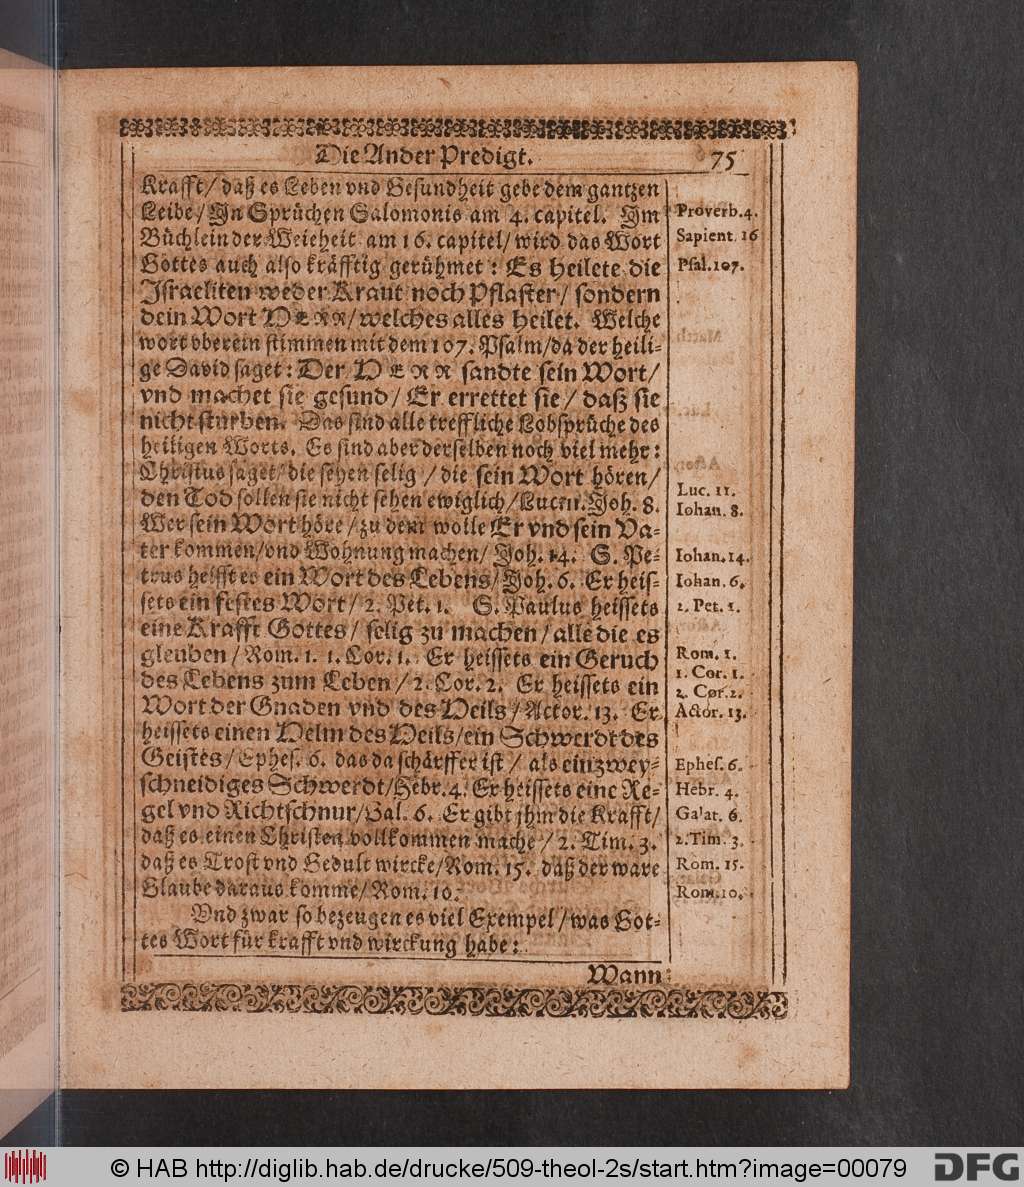 Die Ander Predigt. 75
Krafft/ daß es Leben vnd Gesundheit gebe dem gantzen
Leibe/ In Sprüchen Salomonis am 4. capitel. Im
Proverb. 4.
Büchlein der Weißheit am 16. capitel/ wird das Wort
Sapient. 16
Gottes auch also kräfftig gerühmet: Es heilete die
Psal. 107.
Israeliten weder Kraut noch Pflaster/ sondern
dein Wort HERR/ welches alles heilet. Welche
wort oberein stimmen mit dem 107. Psalm/ da der heili-
ge David saget: Der HERR sandte sein Wort/
vnd machet sie gesund/ Er errettet sie/ daß sie
nicht sturben. Das sind alle treffliche Lobsprüche des
heiligen Worts. Es sind aber derselben noch viel mehr:
Christus saget/ die seyen selig/ die sein Wort hören/
den Tod sollen sie nicht sehen ewiglich/ Luc. 11. Joh. 8.
Luc. 11.
Iohan. 8.
Wer sein Wort höre/ zu dem wolle Er vnd sein Va-
ter kommen/ vnd Wohnung machen/ Joh. 14. S. Pe-
Iohan. 14.
trus heisst es ein Wort des Lebens/ Joh. 6. Er heis-
Iohan. 6.
sets ein festes Wort/ 2. Pet. 1. S. Paulus heissets
2. Pet. 1.
eine Krafft Gottes/ selig zu machen/ alle die es
gleuben/ Rom. 1. 1. Cor. 1. Er heissets ein Geruch
Rom. 1.
1. Cor. 1.
des Lebens zum Leben/ 2. Cor. 2. Er heissets ein
2. Cor. 2.
Wort der Gnaden vnd des Heils/ Actor. 13. Er
Actor. 13.
heissets einen Helm des Heils/ ein Schwerdt des
Geistes/ Ephes. 6. das da schärffer ist/ als ein zwey-
Ephes. 6.
schneidiges Schwerdt/ Hebr. 4. Er heissets eine Re-
Hebr. 4.
gel vnd Richtschnur/ Gal. 6. Er gibt jhm die Krafft/
Galat. 6.
daß es einen Christen vollkommen mache/ 2. Tim. 3.
2. Tim. 3.
daß es Trost vnd Gedult wircke/ Rom. 15. daß der ware
Rom. 15.
Glaube daraus komme/ Rom. 10.
Rom. 10.
Vnd zwar so bezeugen es viel Exempel/ was Got-
tes Wort für krafft vnd wirckung habe:
Wann
© HAB http://diglib.hab.de/drucke/509-theol-2s/start.htm?image=00079
DFG